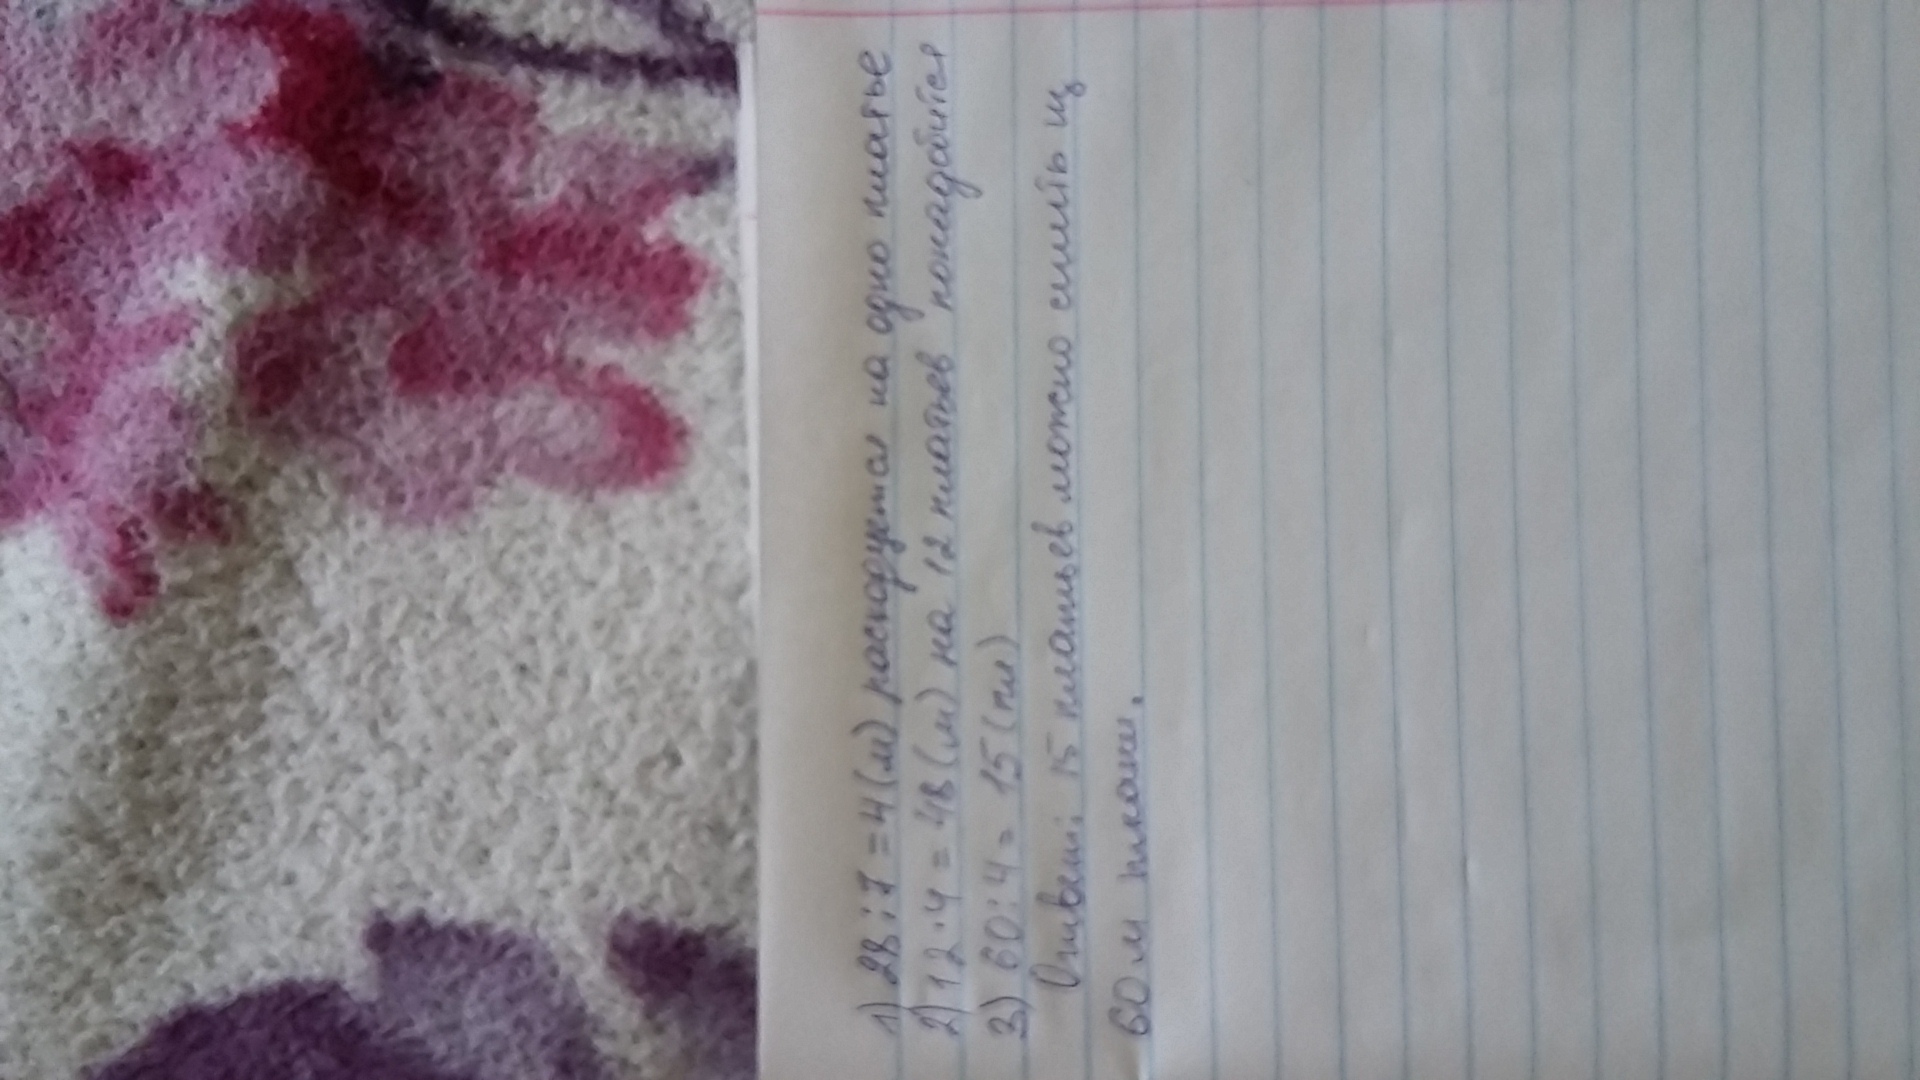 1) 28 : 7 = 4 (м) расходуется на одно платье
2) 12 · 4 = 48 (м) на 12 платьев понадобится
3) 60 : 4 = 15 (пл)
Ответ: 15 платьев можно сшить из
60 м ткани.